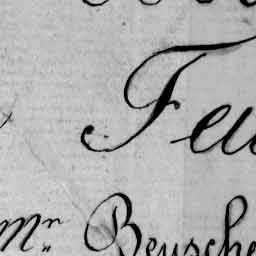 Feu
Mr. Beusche